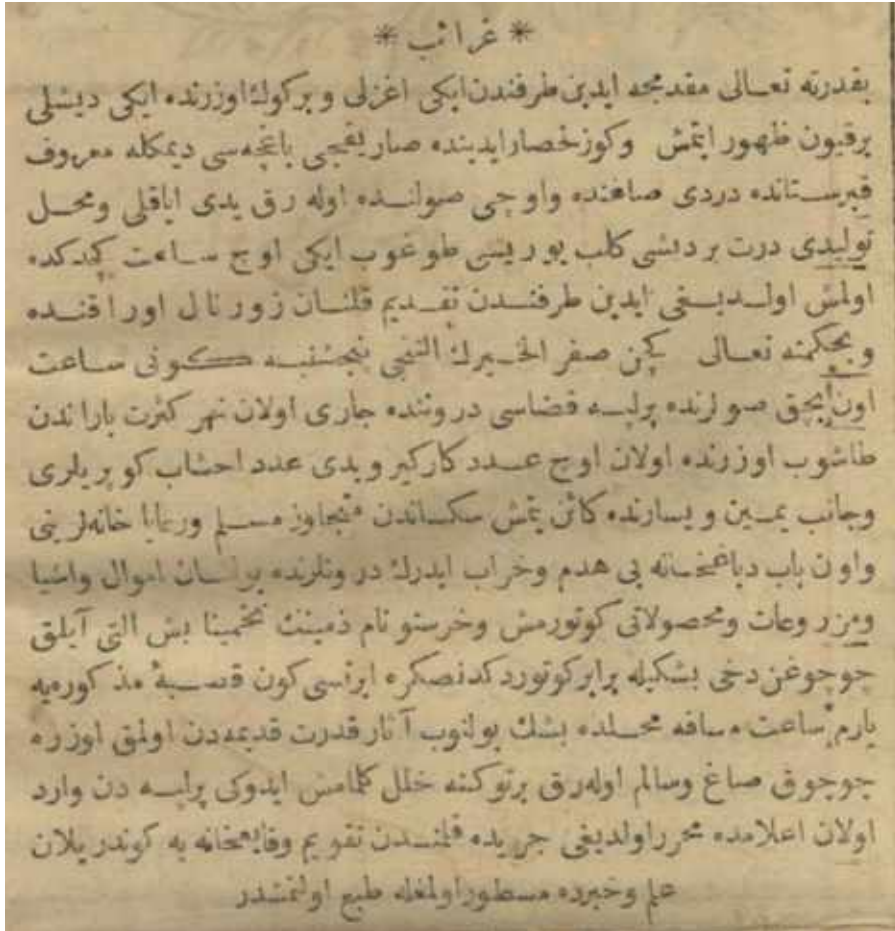 * غرائب *
بقدرته تعالی مقدمجه ایدین طرفندن ایکی اغزلی و برکوك اوزرنده ایکی دیشلی
برقیون ظهور ایتمش وکوزلحصار ایدیننده صاریقجی باغچه‌سی دیمکله معروف
قبرستانده دردی صاغنده واوچی صولنده اوله رق یدی ایاقلی ومحل
تولیدی درت بر دیشی کلب یوریسی طوغوب ایکی اوچ ساعت کچدکده
اولمش اولدیغی ایدین طرفندن تقدیم قلنان زورنال اوراقنده
وبحکمته تعالی کچن صفر الخیرك التنجی پنجشنبه کونی ساعت
اون ایچق صولرنده پرلپه قضاسی دروننده جاری اولان نهر کثرت باراندن
طاشوب اوزرنده اولان اوچ عدد کارکیر ویدی عدد احشاب کوپریلری
وجانب یمین ویسارنده کائن یتمش سکساندن متجاوز مسلم ورعایا خانه‌لرینی
واون باب دباغخانه یی هدم وخراب ایدرك درونلرنده بولنان اموال واشیا
ومزروعات ومحصولاتی کوتورمش وخرستو نام ذمینك تخمینا بش التی آیلق
چوجوغن دخی بشکیله برابر کوتوردکدنصکره ایرتسی کون قصبهٔ مذکوره‌یه
یارم ساعت مسافه محلده بشك بولنوب آثار قدرت قدیمه‌دن اولمق اوزره
چوجوق صاغ وسالم اوله‌رق برتوکنه خلل کلمامش ایدوکی پرلپه دن وارد
اولان اعلامده محرر اولدیغی جریده قلمندن تقویم وقایعخانه یه کوندریلان
علم وخبرده مسطور اولمغله طبع اولنمشدر